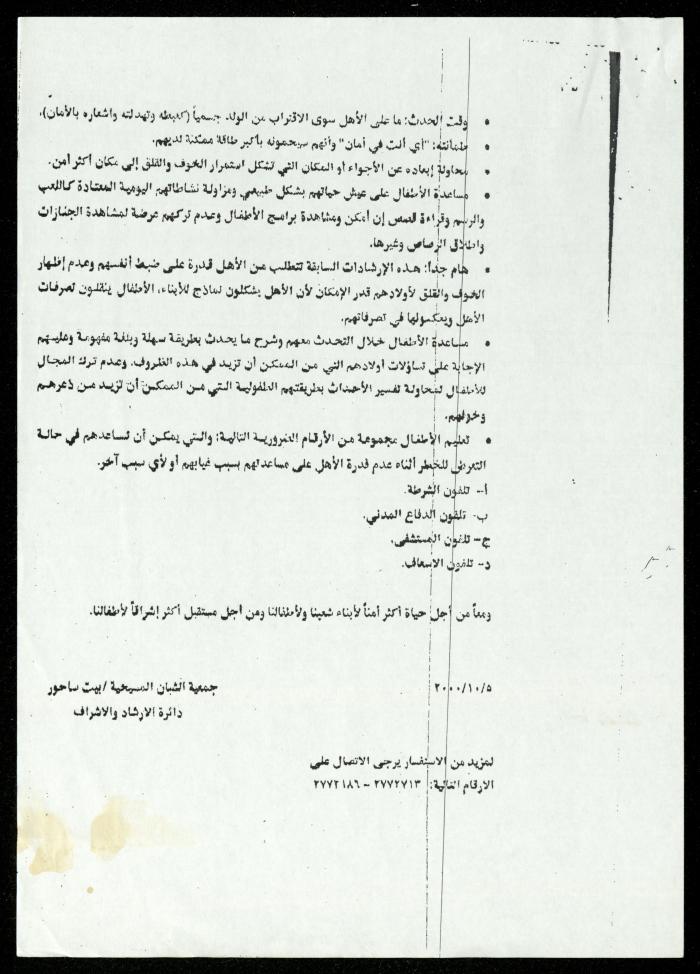 • وقت الحدث: ما على الأهل سوى الاقتراب من الولد جسمياً (كغبطه وتهدئته واشعاره بالأمان)،
• طمأنته: "أي أنت في أمان" وأنهم سيحمونه بأكبر طاقة ممكنة لديهم.
• محاولة إبعاده عن الأجواء أو المكان التي تشكل استمرار الخوف والقلق إلى مكان أكثر أمن.
• مساعدة الأطفال على عيش حياتهم بشكل طبيعي ومزاولة نشاطاتهم اليومية المعتادة كاللعب
والرسم وقراءة قصص إن أمكن ومشاهدة برامج الأطفال وعدم تركهم عرضة لمشاهدة الجنازات
واطلاق الرصاص وغيرها.
• هام جداً: هذه الإرشادات السابقة تتطلب من الأهل قدرة على ضبط أنفسهم وعدم إظهار
الخوف والقلق لأولادهم قدر الإمكان لأن الأهل يشكلون نماذج للأبناء، الأطفال ينقلون تصرفات
الأهل ويعكسونها في تصرفاتهم.
• مساعدة الأطفال خلال التحدث معهم وشرح ما يحدث بطريقة سهلة وبلغة مفهومة وعليهم
الإجابة على تساؤلات أولادهم التي من الممكن أن تزيد في هذه الظروف. وعدم ترك المجال
للأطفال لمحاولة تفسير الأحداث بطريقتهم الطفولية التي من الممكن أن تزيد من ذعرهم
وخوفهم.
• تعليم الأطفال مجموعة من الأرقام الضرورية التالية: والتي يمكن أن تساعدهم في حالة
التعرض للخطر أثناء عدم قدرة الأهل على مساعدتهم بسبب غيابهم أو لأي سبب آخر.
أ- تلفون الشرطة.
ب- تلفون الدفاع المدني.
ج- تلفون المستشفى.
د- تلفون الاسعاف.
ومعاً من أجل حياة أكثر أمناً لأبناء شعبنا ولأطفالنا ومن أجل مستقبل أكثر إشراقاً لأطفالنا.
٢٠٠٠/١٠/٥
جمعية الشبان المسيحية / بيت ساحور
دائرة الارشاد والاشراف
لمزيد من الاستفسار يرجى الاتصال على
الارقام التالية: ٢٧٧٢٧١٣ - ٢٧٧٢١٨٦